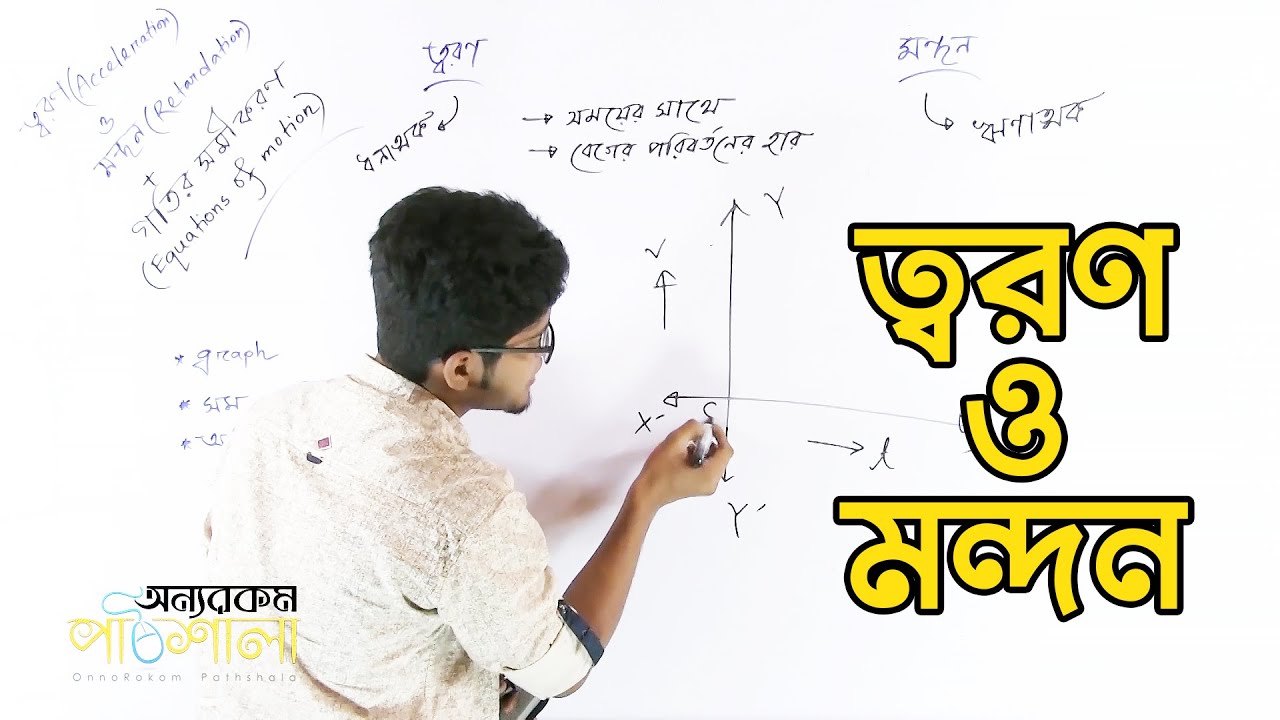 ত্বরণ (Acceleration)
ও
মন্দন (Retardation)
+
গতির সমীকরণ
(Equations of motion)
ত্বরণ
ধনাত্মক
→ সময়ের সাথে
→ বেগের পরিবর্তনের হার
মন্দন
ঋণাত্মক
Y
v
X'
t
Y'
* graph
* সম
ত্বরণ
ও
মন্দন
অন্যরকম
পাঠশালা
OnnoRokom Pathshala